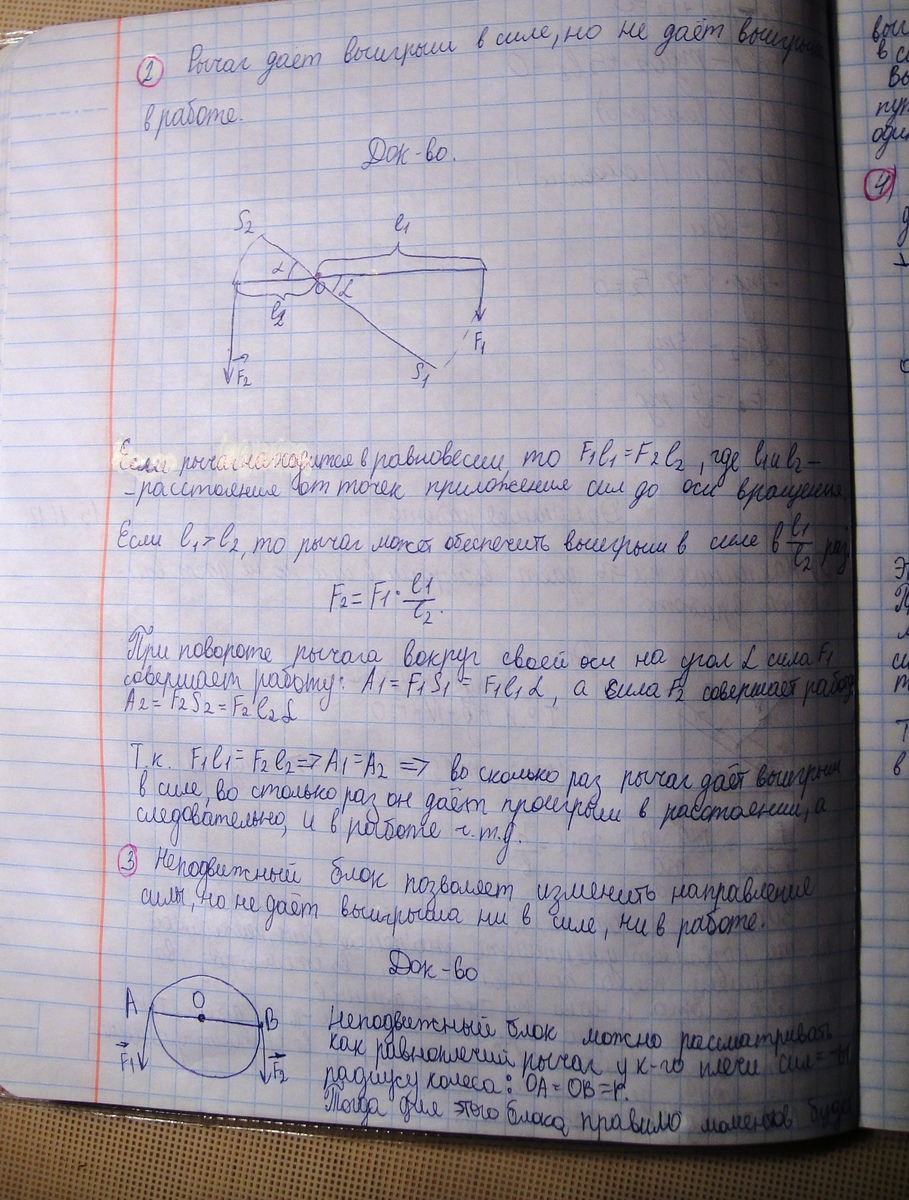 2 Рычаг даёт выигрыш в силе, но не даёт выигрыш
в работе.
Док-во.
S2
l1
α
O
α
l2
F1
F2
S1
Если рычаг находится в равновесии, то F1l1=F2l2, где l1 и l2 –
-расстояния от точек приложения сил до оси вращения
Если l1>l2, то рычаг может обеспечить выигрыш в силе в l1/l2 раз
F2=F1·l1/l2.
При повороте рычага вокруг своей оси на угол α сила F1
совершает работу: A1=F1S1=F1l1α, а сила F2 совершает работу
A2=F2S2=F2l2α
Т.к. F1l1=F2l2=>A1=A2 => во сколько раз рычаг даёт выигрыш
в силе, во столько раз он даёт проигрыш в расстоянии, а
следовательно, и в работе ч.т.д.
3 Неподвижный блок позволяет изменить направление
силы, но не даёт выигрыша ни в силе, ни в работе.
Док-во
A
O
B
F1
F2
Неподвижный блок можно рассматривать
как равноплечий рычаг у к-го плечи сил =
радиусу колеса: OA=OB=r.
Тогда для этого блока правило моментов буде
4